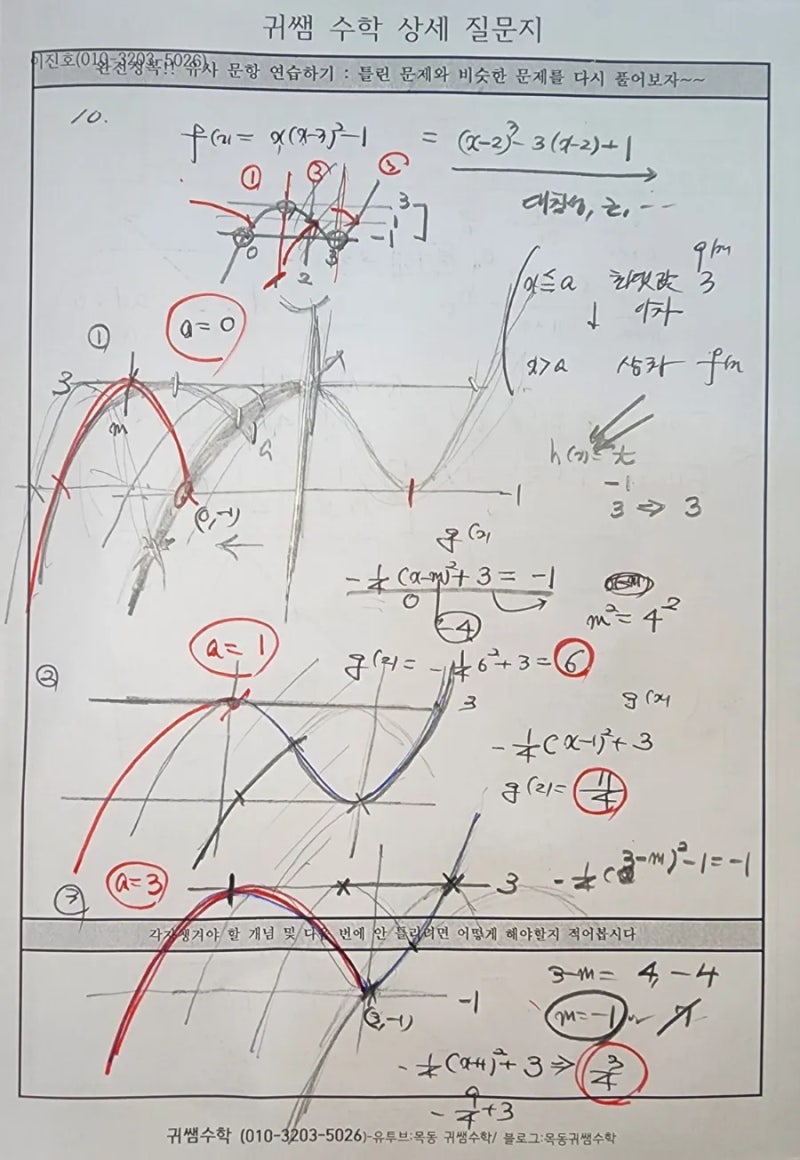 귀쌤 수학 상세 질문지
이진호(010-3203-5026)
완전정복!! 유사 문항 연습하기 : 틀린 문제와 비슷한 문제를 다시 풀어보자~~
10.
f(x) = x(x-3)²-1 = (x-2)³-3(x-2)+1
① ② ③
대칭성, 근, ...
3
1
-1
0 2 3
x≤a 최댓값 3
g(x)
↓ 이차
x>a 삼차 f(x)
① a=0
3
m
a
h(x)=t
-1
3 ⇒ 3
(0,-1)
-1
g(x)
-¼(x-m)²+3 = -1
0
-4
m²=4²
② a=1
g(2)= -¼6²+3=6
3
g(x)
-¼(x-1)²+3
g(2)= 11/4
③ a=3
3
-¼(3-m)²-1=-1
각자생겨야 할 개념 및 다음 번에 안 틀리려면 어떻게 해야할지 적어봅시다
3-m= 4, -4
-1
(3,-1)
m=-1 or 7
-¼(x+1)²+3 ⇒ 3/4
-9/4+3
귀쌤수학 (010-3203-5026)-유투브:목동 귀쌤수학/ 블로그:목동귀쌤수학